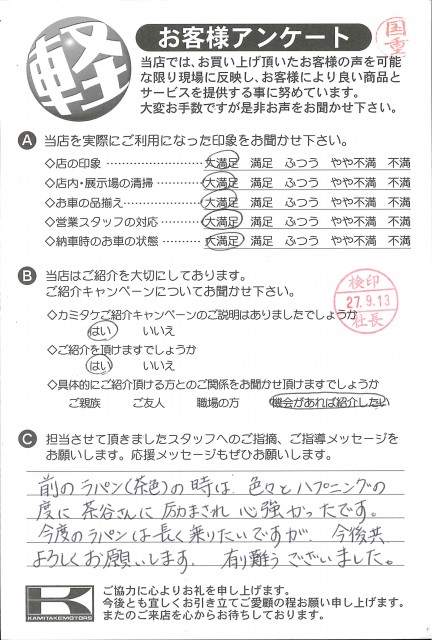 軽
お客様アンケート
国重
当店では、お買い上げ頂いたお客様の声を可能
な限り現場に反映し、お客様により良い商品と
サービスを提供する事に努めています。
大変お手数ですが是非お声をお聞かせ下さい。
A 当店を実際にご利用になった印象をお聞かせ下さい。
◇店の印象 ………………… 大満足 満足 ふつう やや不満 不満
◇店内・展示場の清掃 ……… 大満足 満足 ふつう やや不満 不満
◇お車の品揃え …………… 大満足 満足 ふつう やや不満 不満
◇営業スタッフの対応 ……… 大満足 満足 ふつう やや不満 不満
◇納車時のお車の状態 ……… 大満足 満足 ふつう やや不満 不満
B 当店はご紹介を大切にしております。
ご紹介キャンペーンについてお聞かせ下さい。
検印
27.9.13
社長
◇カミタケご紹介キャンペーンのご説明はありましたでしょうか
はい いいえ
◇ご紹介を頂けますでしょうか
はい いいえ
◇具体的にご紹介頂ける方とのご関係をお聞かせ頂けますでしょうか
ご親族 ご友人 職場の方 機会があれば紹介したい
C 担当させて頂きましたスタッフへのご指摘、ご指導メッセージを
お願いします。応援メッセージもぜひお願いします。
前のラパン(茶色)の時は、色々とハプニングの
度に茶谷さんに励まされ心強かったです。
今度のラパンは長く乗りたいですが、今後共
よろしくお願いします。有り難うございました。
K
KAMITAKEMOTORS
ご協力に心よりお礼を申し上げます。
今後とも宜しくお引き立てご愛顧の程お願い申し上げます。
またのご来店を心からお待ちしております。